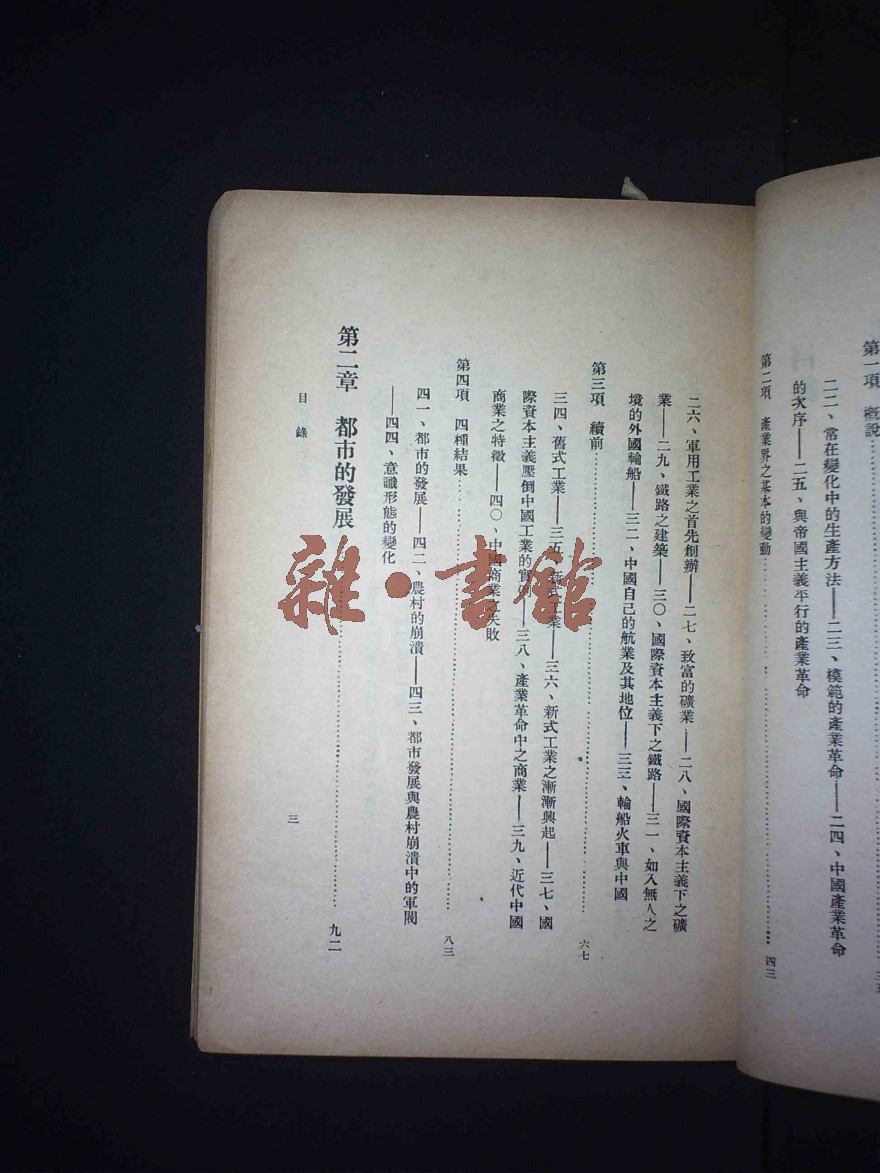 第一項　槪說
二二、常在變化中的生產方法——二三、模範的產業革命——二四、中國產業革命
的次序——二五、與帝國主義平行的產業革命
第二項　產業界之基本的變動……四三
二六、軍用工業之首先創辦——二七、致富的礦業——二八、國際資本主義下之礦
業——二九、鐵路之建築——三〇、國際資本主義下之鐵路——三一、如入無人之
境的外國輪船——三二、中國自己的航業及其地位——三三、輪船火車與中國
第三項　續前……六七
三四、舊式工業——三五、新式工業——三六、新式工業之漸漸興起——三七、國
際資本主義壓倒中國工業的實例——三八、產業革命中之商業——三九、近代中國
商業之特徵——四〇、中國商業之失敗
第四項　四種結果……八三
四一、都市的發展——四二、農村的崩潰——四三、都市發展與農村崩潰中的軍閥
——四四、意識形態的變化
第二章　都市的發展……九二
目錄
三
雜·書館